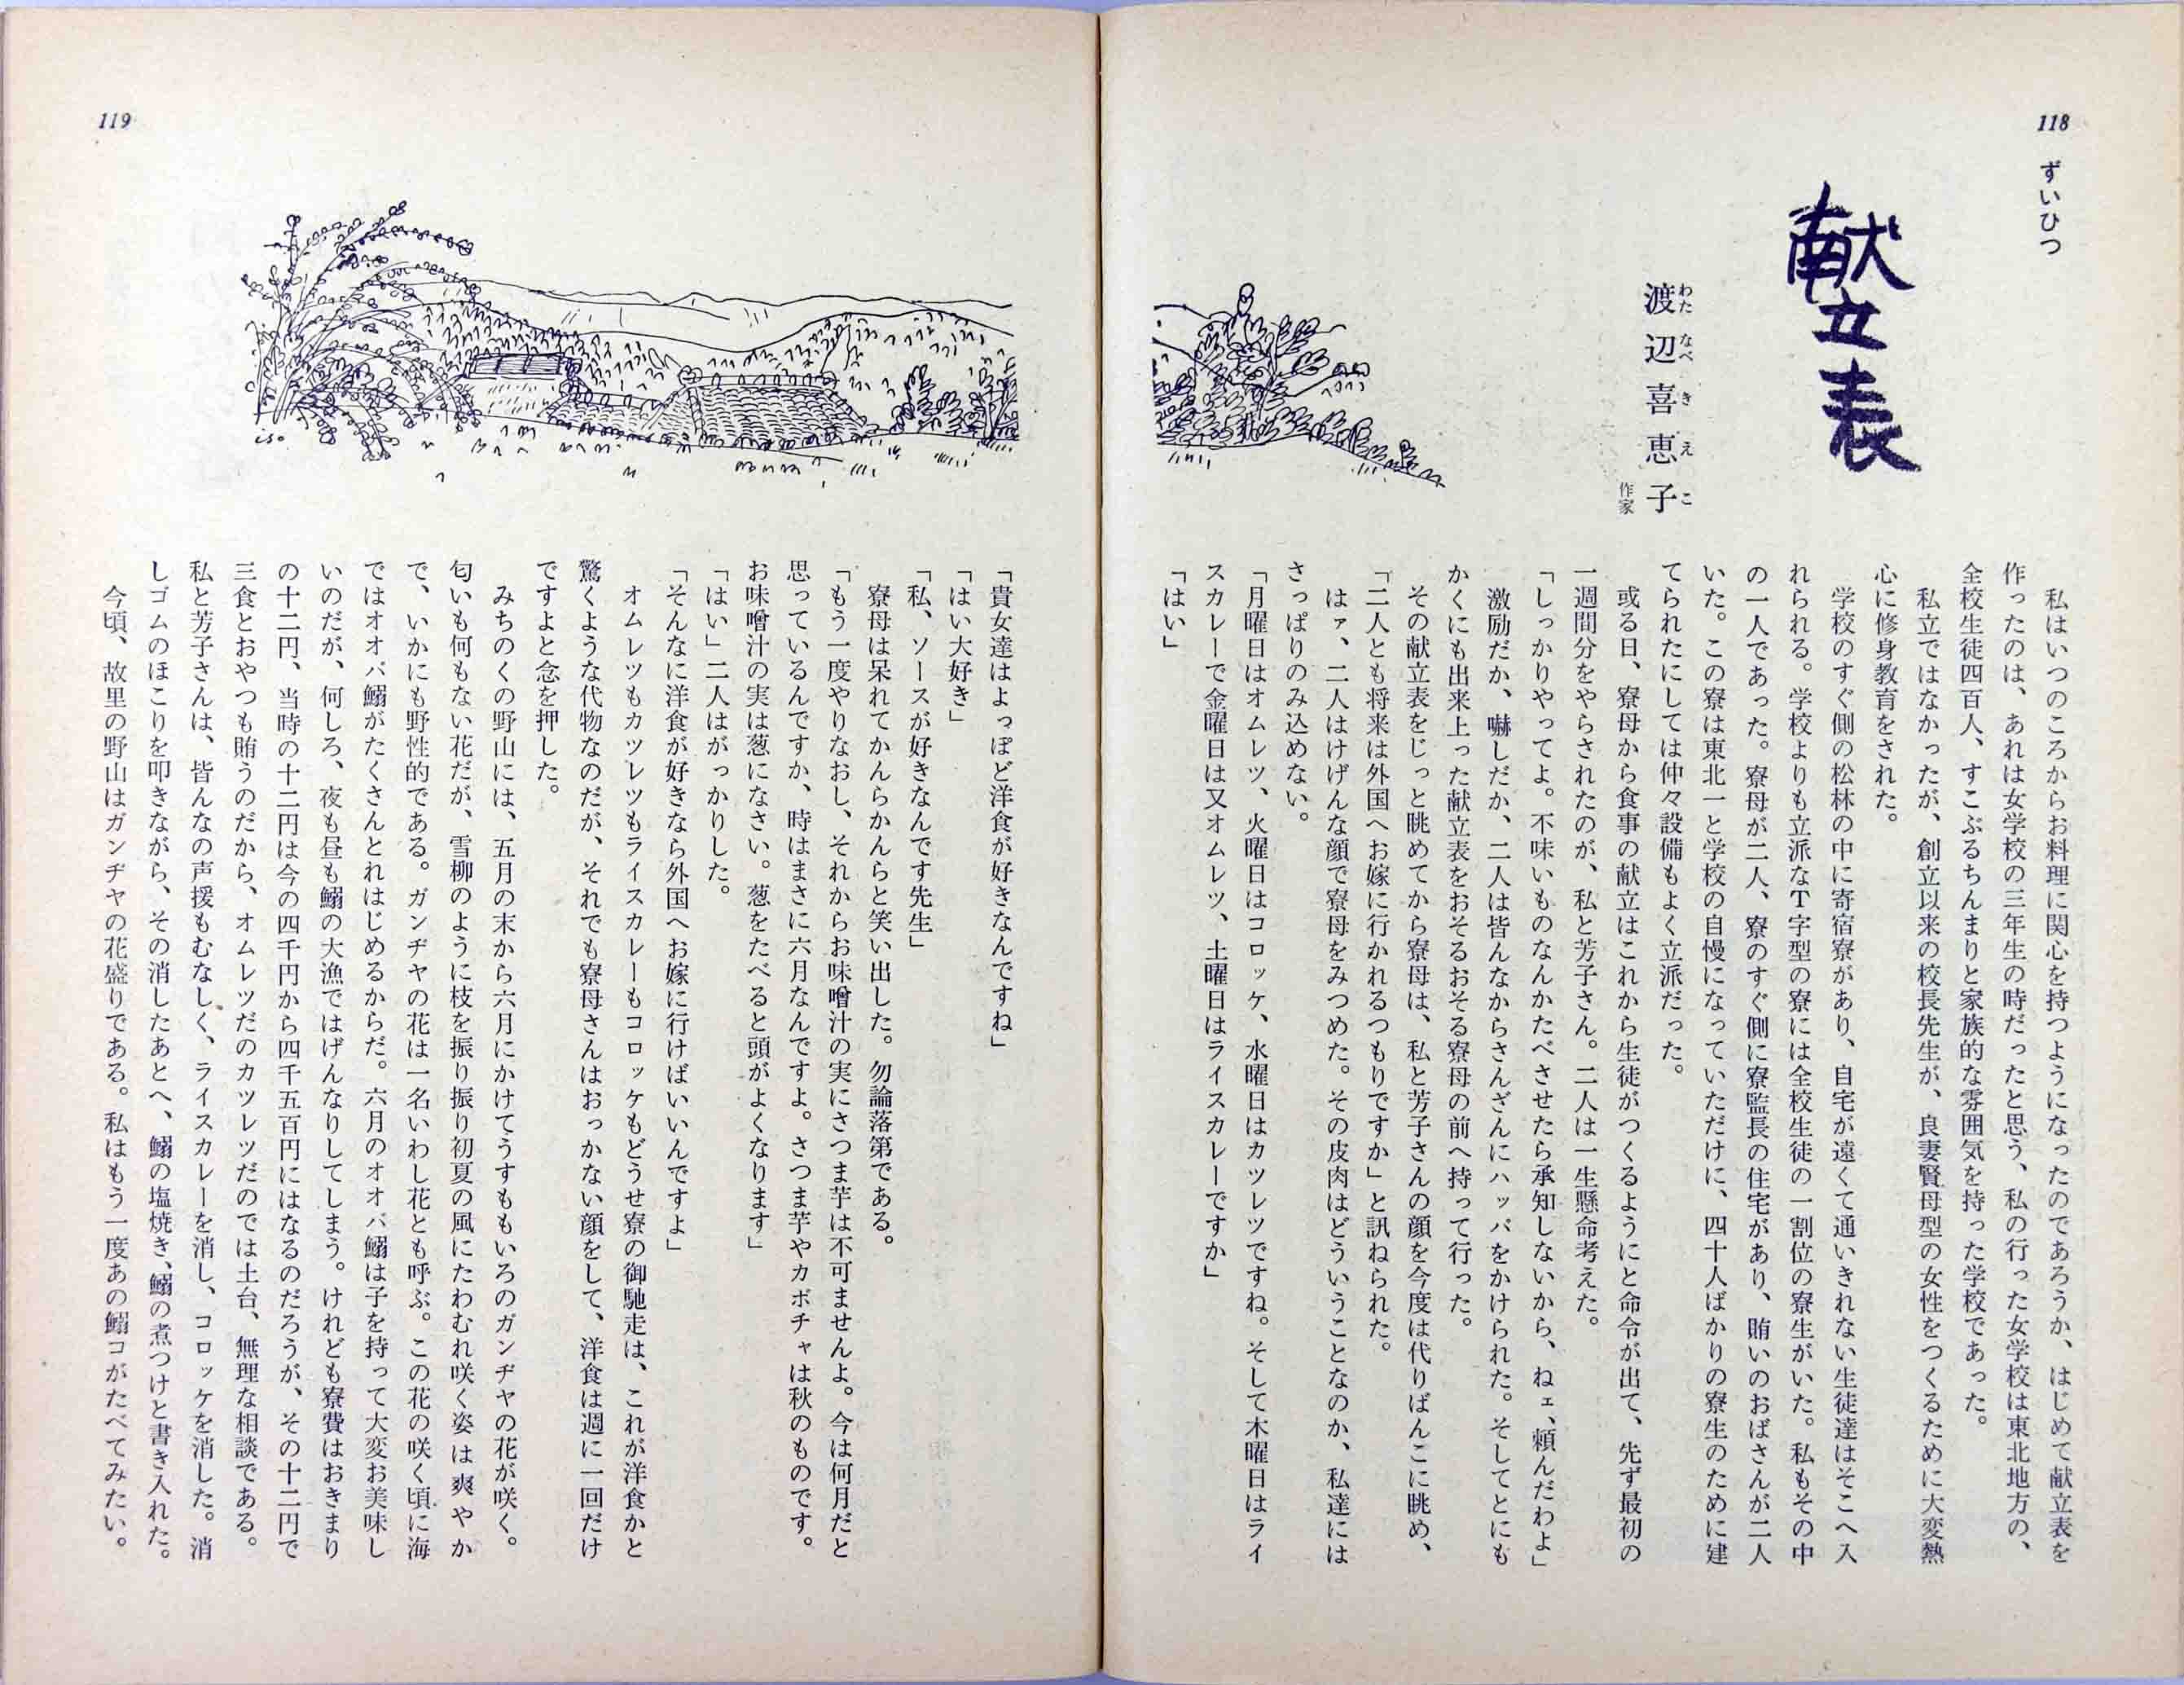 118
ずいひつ
献立表
渡辺喜恵子
わたなべきえこ
作家
私はいつのころからお料理に関心を持つようになったのであろうか、はじめて献立表を
作ったのは、あれは女学校の三年生の時だったと思う、私の行った女学校は東北地方の、
全校生徒四百人、すこぶるちんまりと家族的な雰囲気を持った学校であった。
私立ではなかったが、創立以来の校長先生が、良妻賢母型の女性をつくるために大変熱
心に修身教育をされた。
学校のすぐ側の松林の中に寄宿寮があり、自宅が遠くて通いきれない生徒達はそこへ入
れられる。学校よりも立派なT字型の寮には全校生徒の一割位の寮生がいた。私もその中
の一人であった。寮母が二人、寮のすぐ側に寮監長の住宅があり、賄いのおばさんが二人
いた。この寮は東北一と学校の自慢になっていただけに、四十人ばかりの寮生のために建
てられたにしては仲々設備もよく立派だった。
或る日、寮母から食事の献立はこれから生徒がつくるようにと命令が出て、先ず最初の
一週間分をやらされたのが、私と芳子さん。二人は一生懸命考えた。
「しっかりやってよ。不味いものなんかたべさせたら承知しないから、ねェ、頼んだわよ」
激励だか、嚇しだか、二人は皆んなからさんざんにハッパをかけられた。そしてとにも
かくにも出来上った献立表をおそるおそる寮母の前へ持って行った。
その献立表をじっと眺めてから寮母は、私と芳子さんの顔を今度は代りばんこに眺め、
「二人とも将来は外国へお嫁に行かれるつもりですか」と訊ねられた。
はァ、二人はけげんな顔で寮母をみつめた。その皮肉はどういうことなのか、私達には
さっぱりのみ込めない。
「月曜日はオムレツ、火曜日はコロッケ、水曜日はカツレツですね。そして木曜日はライ
スカレーで金曜日は又オムレツ、土曜日はライスカレーですか」
「はい」
119
「貴女達はよっぽど洋食が好きなんですね」
「はい大好き」
「私、ソースが好きなんです先生」
寮母は呆れてかんらかんらと笑い出した。勿論落第である。
「もう一度やりなおし、それからお味噌汁の実にさつま芋は不可ませんよ。今は何月だと
思っているんですか、時はまさに六月なんですよ。さつま芋やカボチャは秋のものです。
お味噌汁の実は葱になさい。葱をたべると頭がよくなります」
「はい」二人はがっかりした。
「そんなに洋食が好きなら外国へお嫁に行けばいいんですよ」
オムレツもカツレツもライスカレーもコロッケもどうせ寮の御馳走は、これが洋食かと
驚くような代物なのだが、それでも寮母さんはおっかない顔をして、洋食は週に一回だけ
ですよと念を押した。
みちのくの野山には、五月の末から六月にかけてうすももいろのガンヂヤの花が咲く。
匂いも何もない花だが、雪柳のように枝を振り振り初夏の風にたわむれ咲く姿は爽やか
で、いかにも野性的である。ガンヂヤの花は一名いわし花とも呼ぶ。この花の咲く頃に海
ではオオバ鰯がたくさんとれはじめるからだ。六月のオオバ鰯は子を持って大変お美味し
いのだが、何しろ、夜も昼も鰯の大漁ではげんなりしてしまう。けれども寮費はおきまり
の十二円、当時の十二円は今の四千円から四千五百円にはなるのだろうが、その十二円で
三食とおやつも賄うのだから、オムレツだのカツレツだのでは土台、無理な相談である。
私と芳子さんは、皆んなの声援もむなしく、ライスカレーを消し、コロッケを消した。消
しゴムのほこりを叩きながら、その消したあとへ、鰯の塩焼き、鰯の煮つけと書き入れた。
今頃、故里の野山はガンヂヤの花盛りである。私はもう一度あの鰯コがたべてみたい。
iso